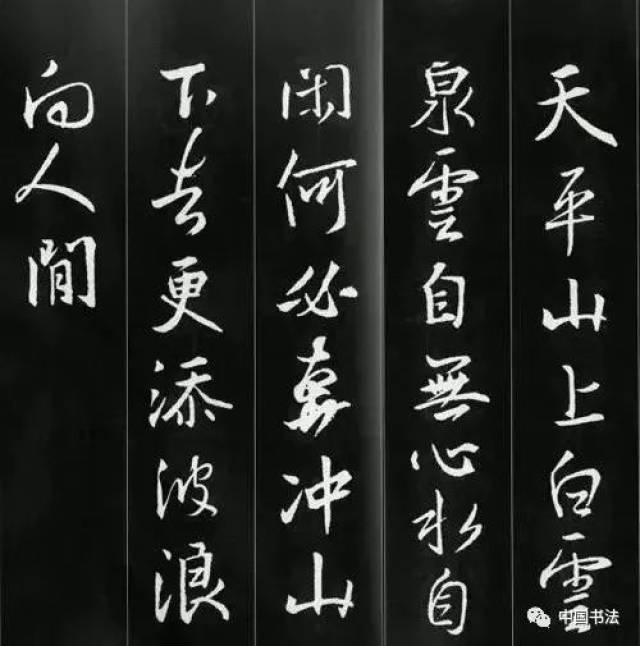 天平山上白雲
泉雲自無心水自
閑何必奔冲山
下去更添波浪
向人間
中国书法